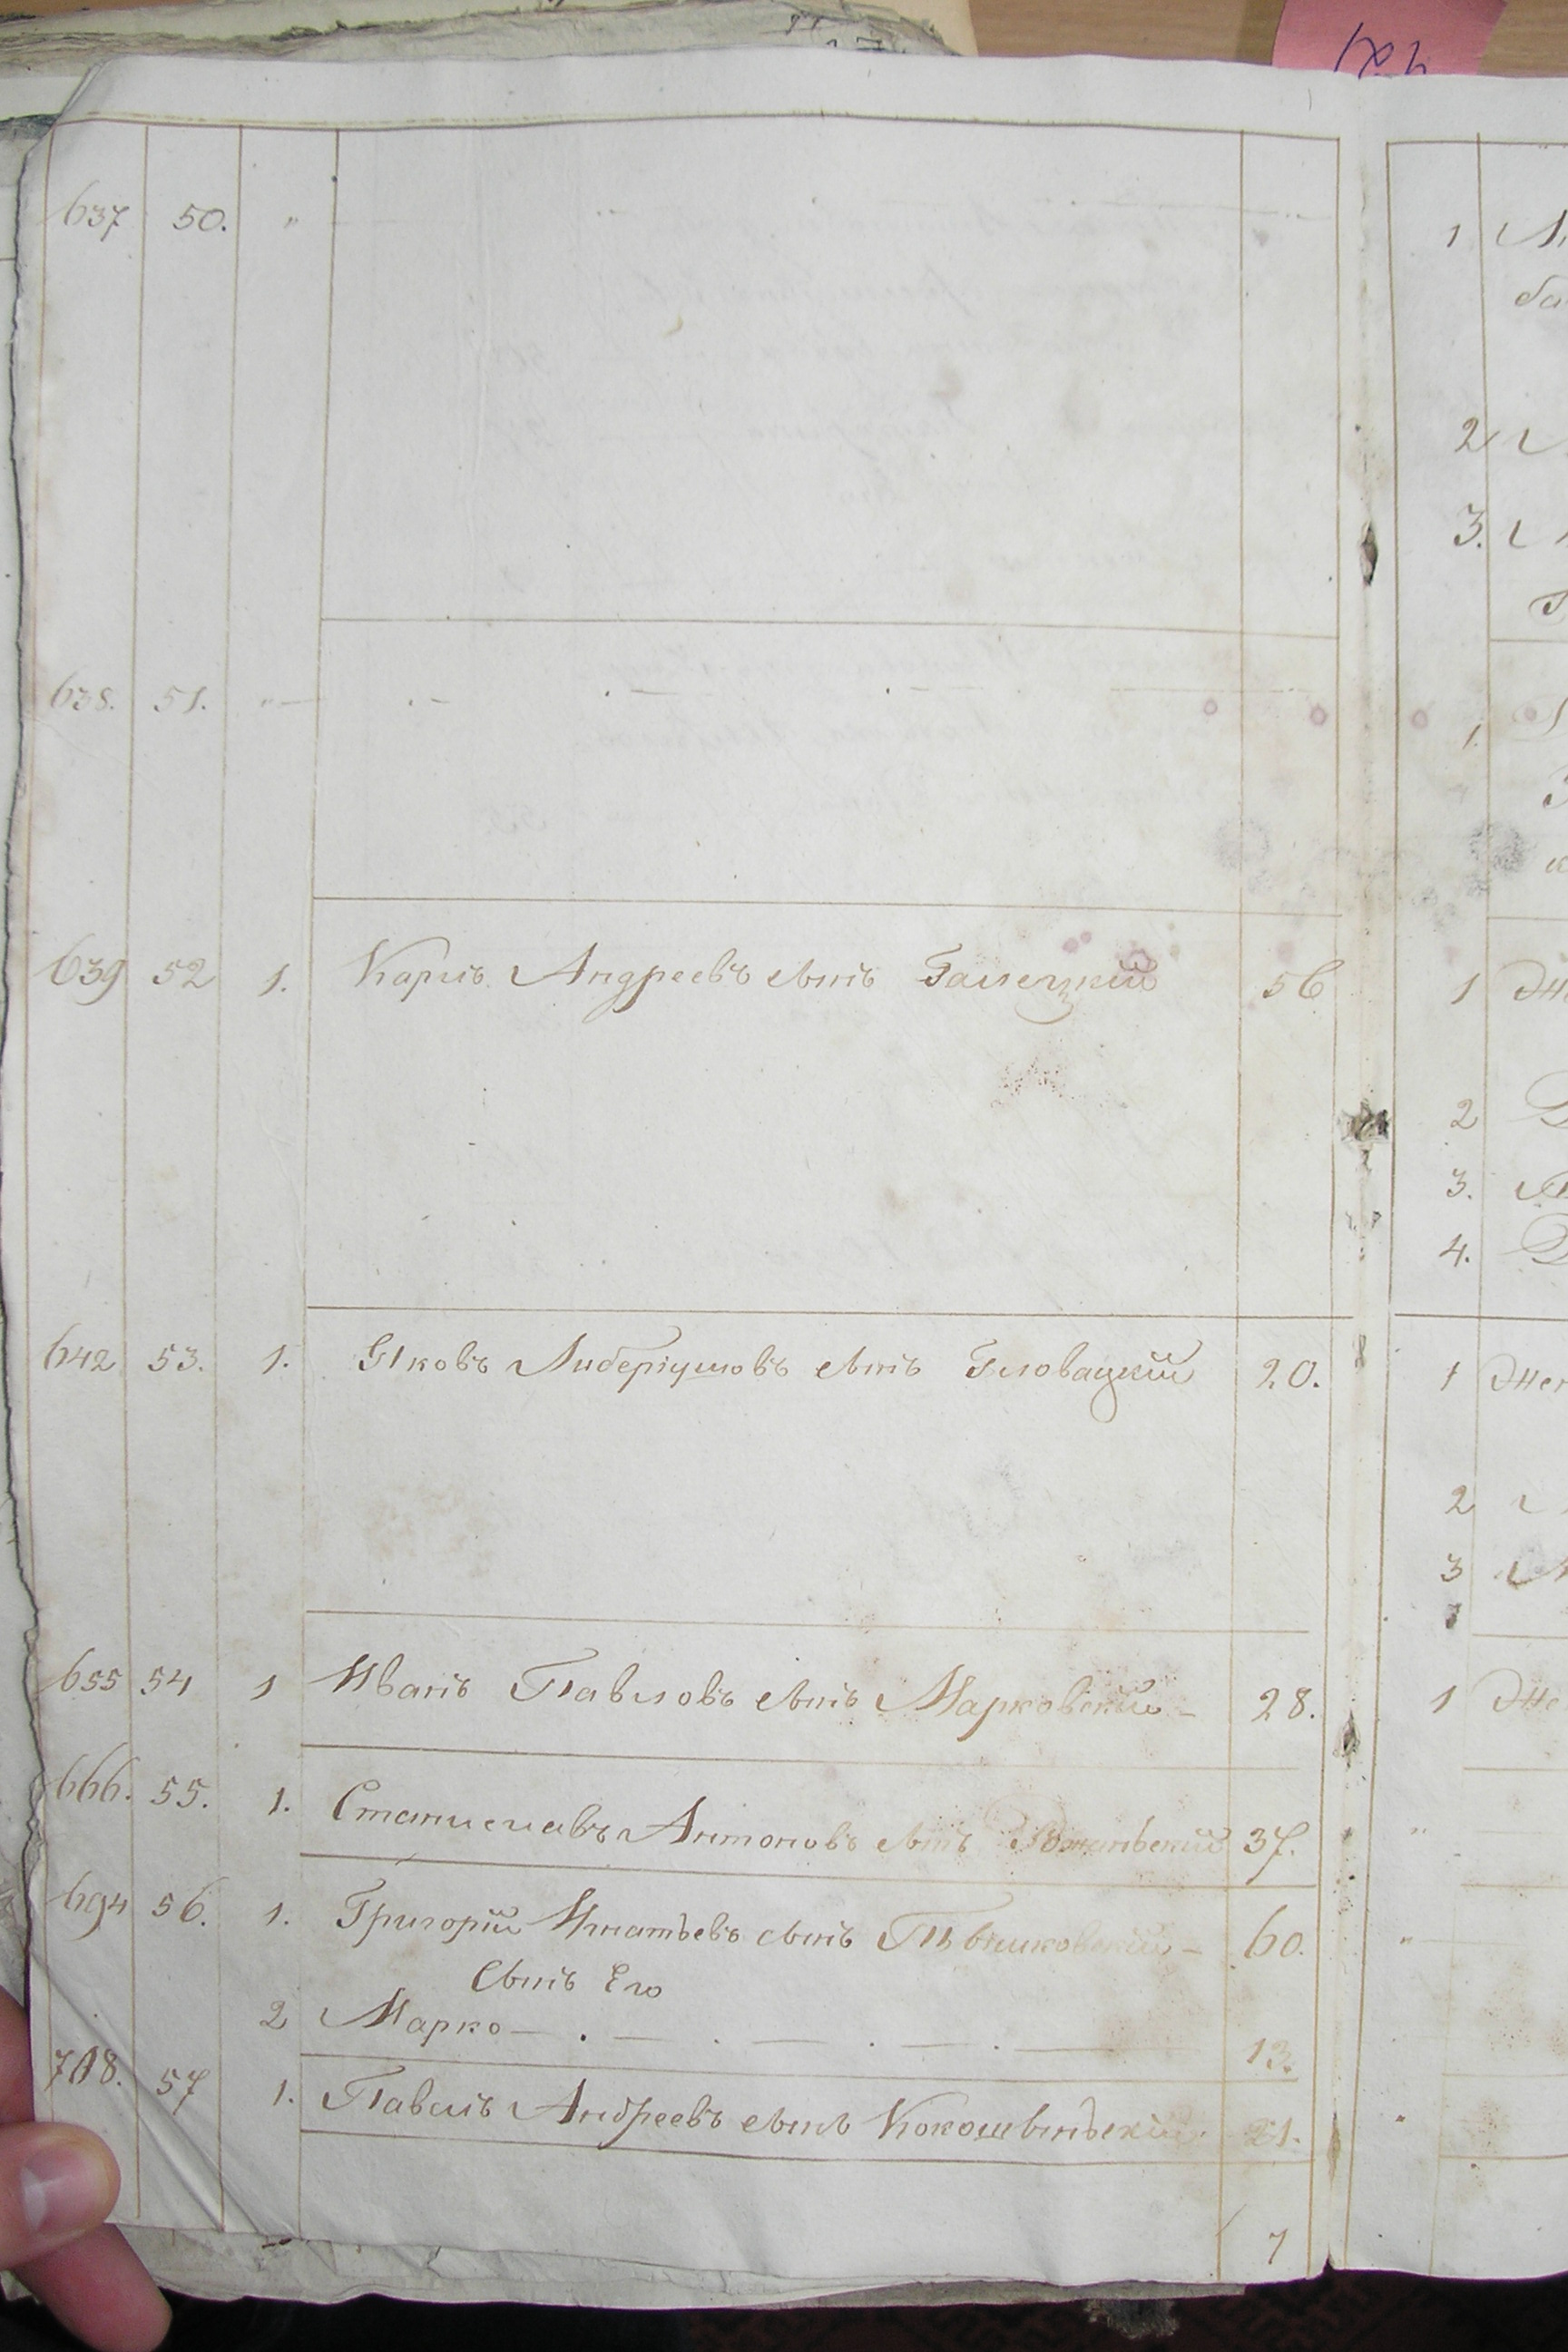 637 50. "
638. 51. "
639 52 1. Карлъ Андреевъ сынъ Галецкий 56
642 53. 1. Яковъ Либеріушовъ сынъ Гловацкий 20.
655 54 1 Иванъ Павловъ сынъ Марковский 28.
666. 55. 1. Станиславъ Антоновъ сынъ 37.
694 56. 1. Григорій Игнатьевъ сынъ 60.
Сынъ Его
2 Марко 13.
708. 57 1. Павелъ Андреевъ сынъ 21.
7
1
ба
2
3.
1.
1 Же
2
3.
4.
1 Жен
2
3
1 Же